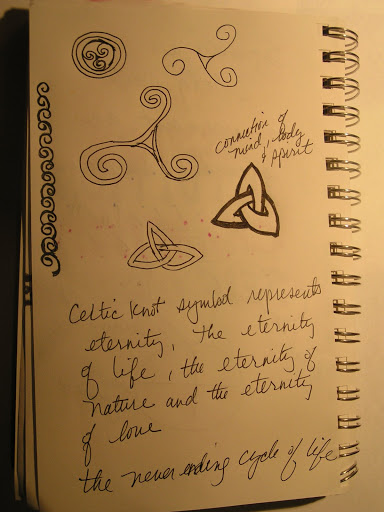 connection of
mind, body
& spirit
Celtic knot symbol represents
eternity, the eternity
of life, the eternity of
nature and the eternity
of love
the never ending cycle of life